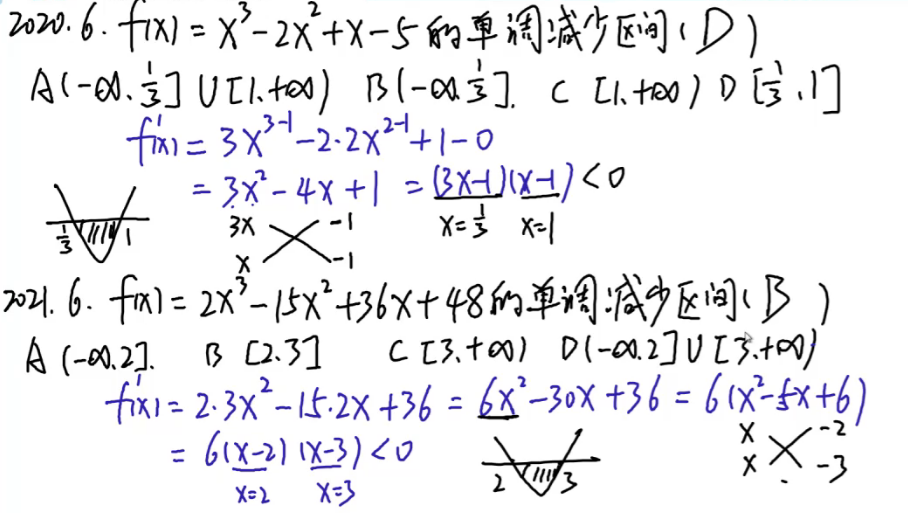 2020.6. f(x) = x³ - 2x² + x - 5 的单调减少区间 ( D )
A (-∞. 1/3] U [1. +∞) B (-∞. 1/3]. C [1. +∞) D [1/3 , 1]
f'(x) = 3x³⁻¹ - 2·2x²⁻¹ + 1 - 0
= 3x² - 4x + 1 = (3x-1)(x-1) < 0
1/3 1 3x -1 x = 1/3 x=1
x -1
2021.6. f(x) = 2x³ - 15x² + 36x + 48 的单调减少区间 ( B )
A (-∞. 2]. B [2. 3] C [3. +∞) D (-∞. 2] U [3. +∞)
f'(x) = 2·3x² - 15·2x + 36 = 6x² - 30x + 36 = 6(x² - 5x + 6)
= 6(x-2)(x-3) < 0 x -2
x=2 x=3 2 3 x -3